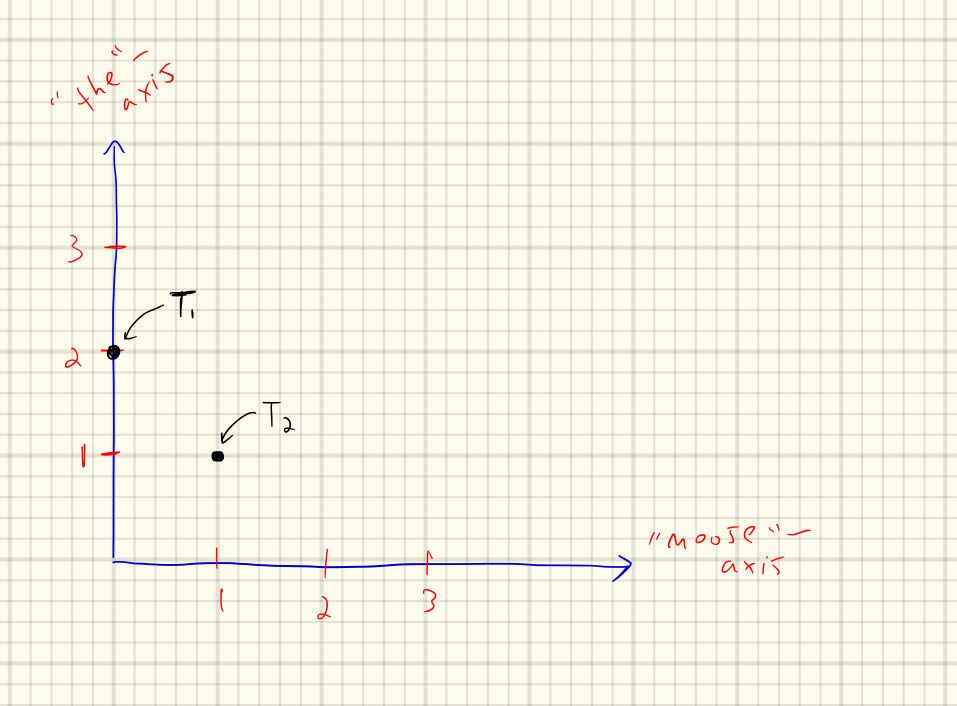 "the"-
axis
3
T1
2
T2
1
"moose"-
axis
1 2 3